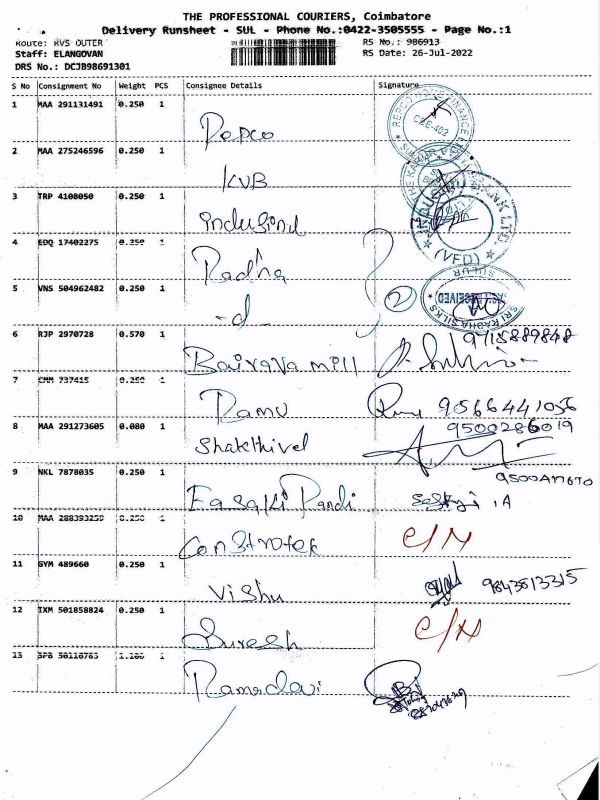 THE PROFESSIONAL COURIERS, Coimbatore
Delivery Runsheet - SUL - Phone No.:0422-3505555 - Page No.:1
Route: KVS OUTER
RS No.: 986913
Staff: ELANGOVAN
RS Date: 26-Jul-2022
DRS No.: DCJB98691301
S No Consignment No Weight PCS Consignee Details Signature
1 MAA 291131491 0.250 1 Repco
2 MAA 275246596 0.250 1 KVB
3 TRP 4108050 0.250 1 Indusind
INDUSIND BANK LTD.
(VFD)
SULUR
4 EDQ 17402275 0.250 1 Radha
5 VNS 504962482 0.250 1 -d- 2
SRI RADHA SILKS
RECEIVED
6 RJP 2970728 0.570 1 Bairava mill 9715889848
7 CMM 737415 0.250 1 Ramu 9566441056
8 MAA 291273605 0.080 1 Shakthivel 9500286019
9 NKL 7878035 0.250 1 Easaki Pandi
10 MAA 288393259 0.250 1 Constrotek C/N
11 GYM 489660 0.250 1 Vishu 9843813315
12 TXM 501858824 0.250 1 Suresh C/N
13 1.100 1 Ramadevi